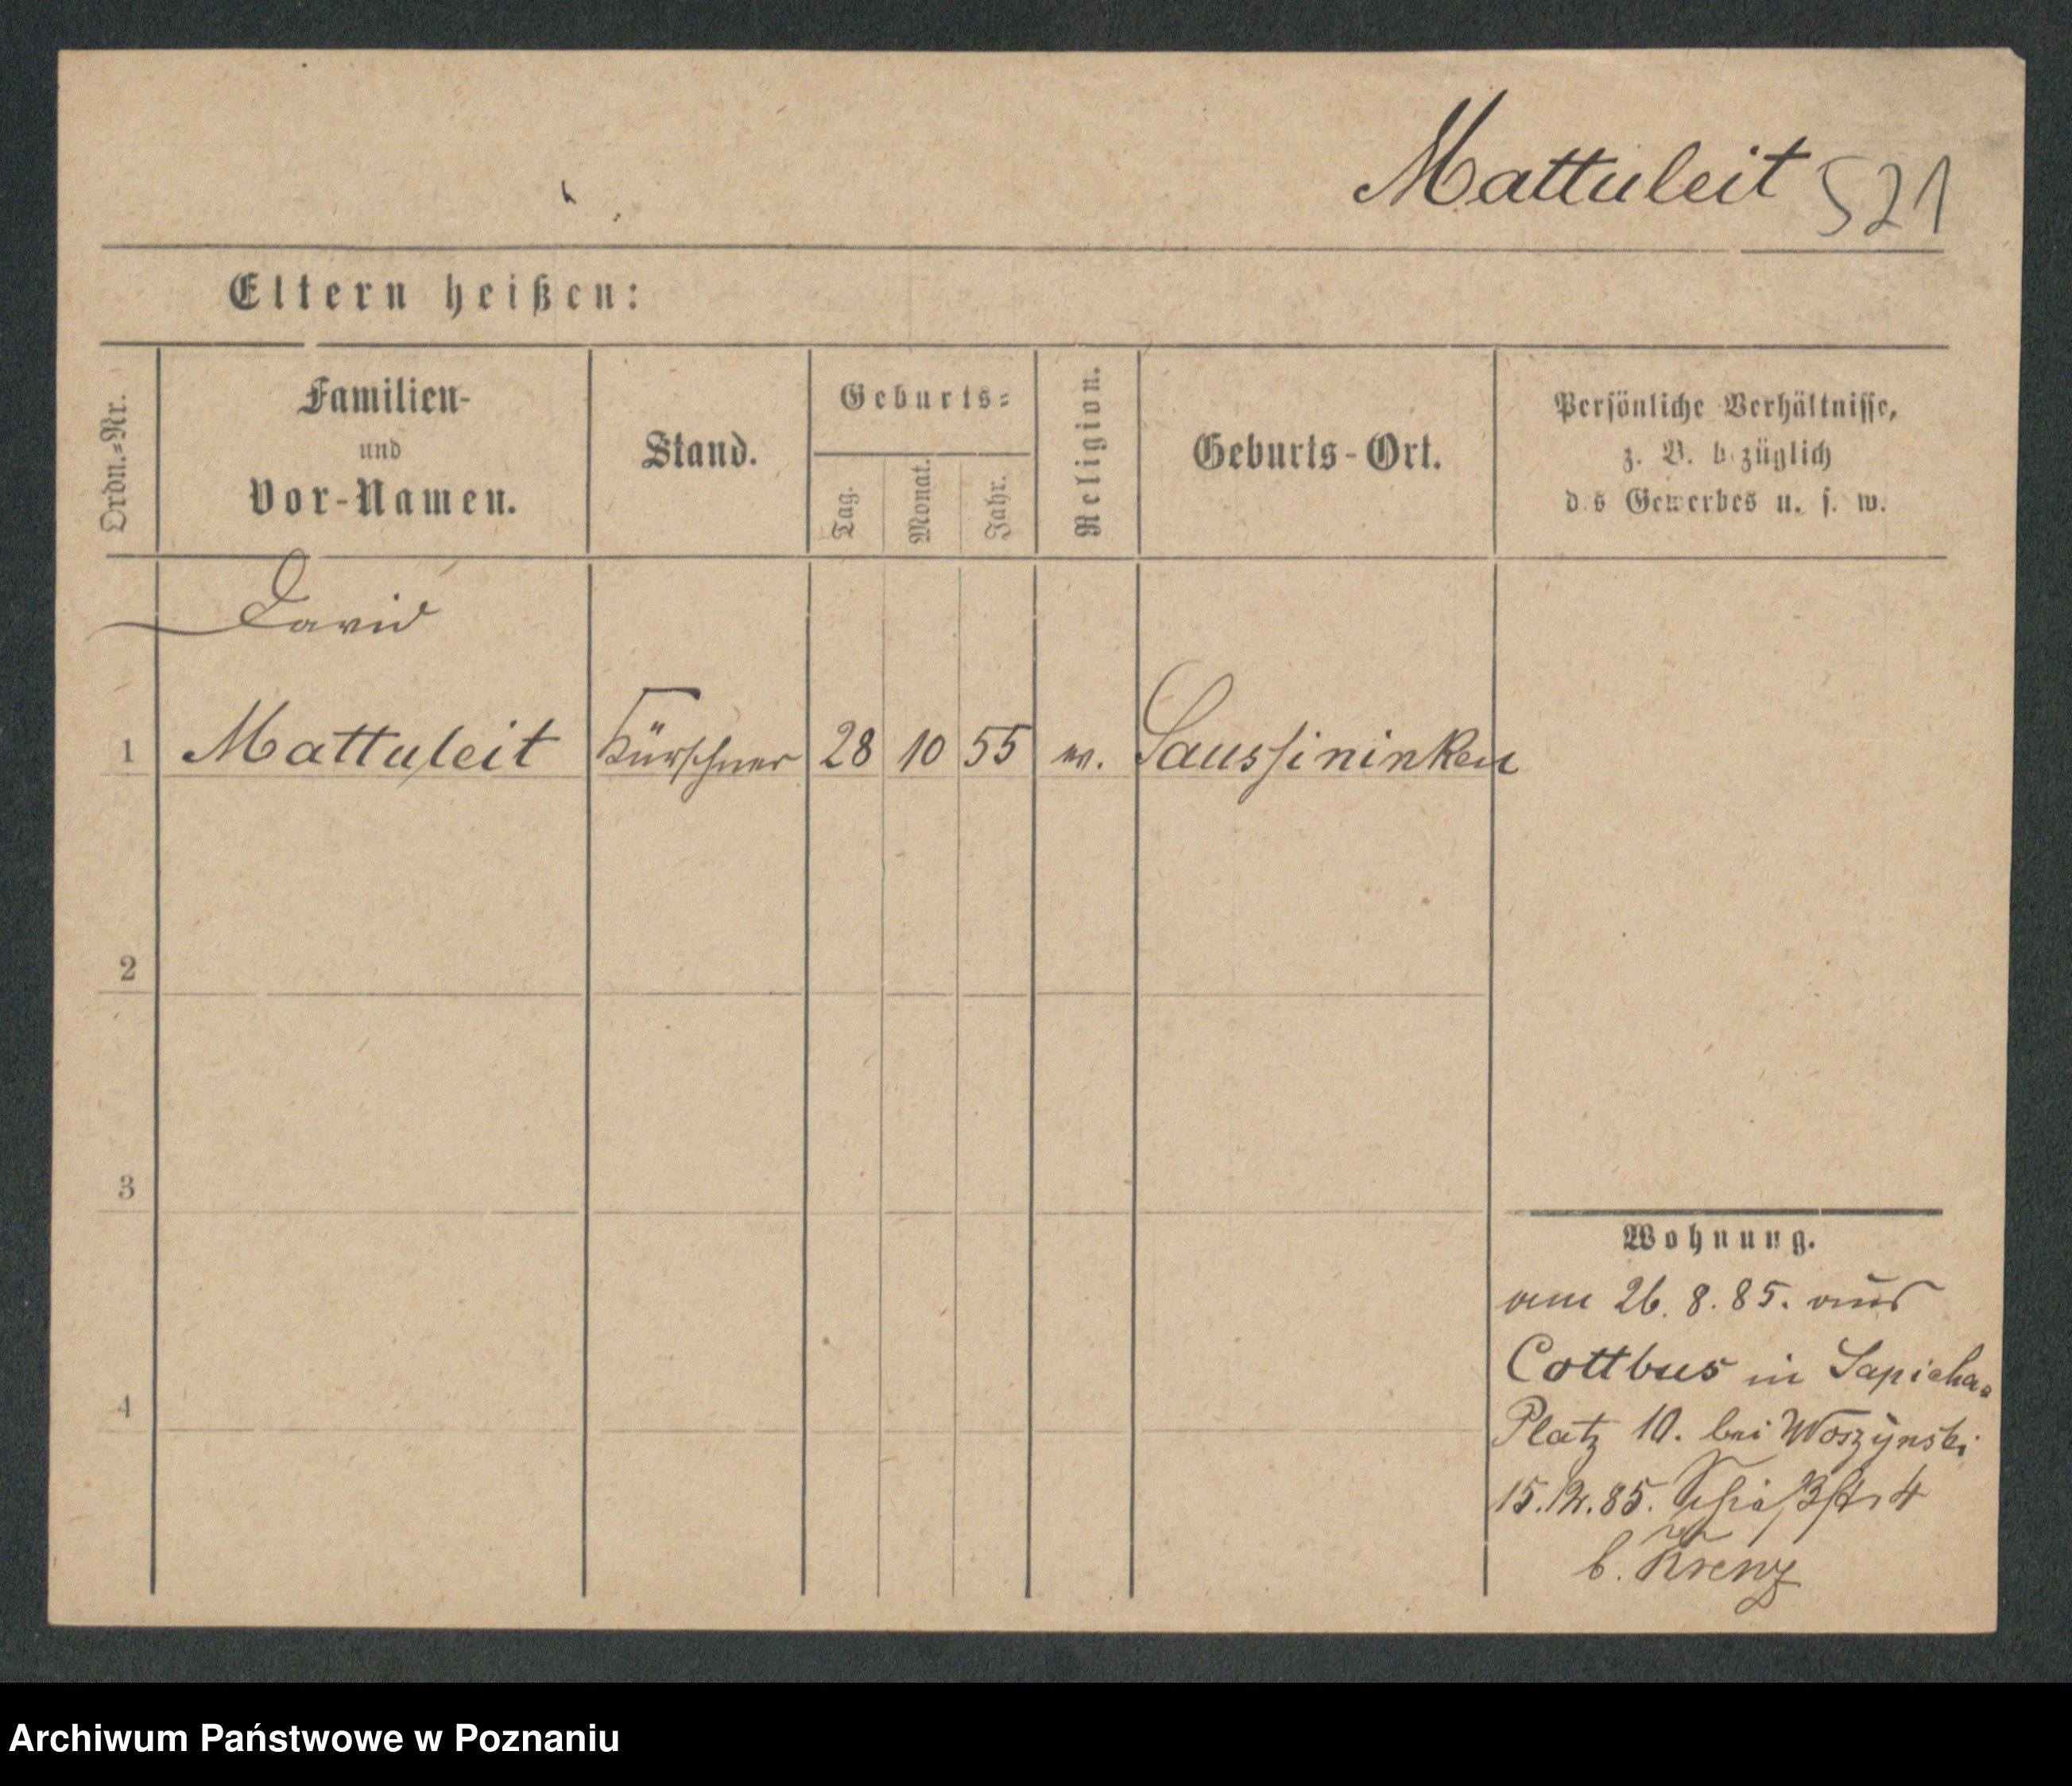 Mattuleit 521
Eltern heißen:
Ordn.=Nr.
Familien-
und
Vor-Namen.
Stand.
Geburts=
Tag.
Monat.
Jahr.
Religion.
Geburts-Ort.
Persönliche Verhältnisse,
z. B. bezüglich
des Gewerbes u. s. w.
David
1 Mattuleit Kürschner 28 10 55 ev. Saussininken
2
3
4
Wohnung.
am 26. 8. 85. aus
Cottbus in Sapieha-
Platz 10. bei Woszynski
15.12.85. 4
b. Krenz
Archiwum Państwowe w Poznaniu